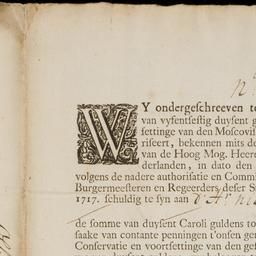 WY ondergeschreeven te
van vysentseftig duysent g
settinge van den Moscovis
riseert, bekennen mits de
van de Hoog Mog. Heere
derlanden, in dato den
volgens de nadere authorisatie en Commi
Burgermeesteren en Regeerders deser S
1717. schuldig te syn aan
de somme van duysent Caroli guldens to
saake van contante penningen t'onsen ge
Conservatie en voortsettinge van den ges